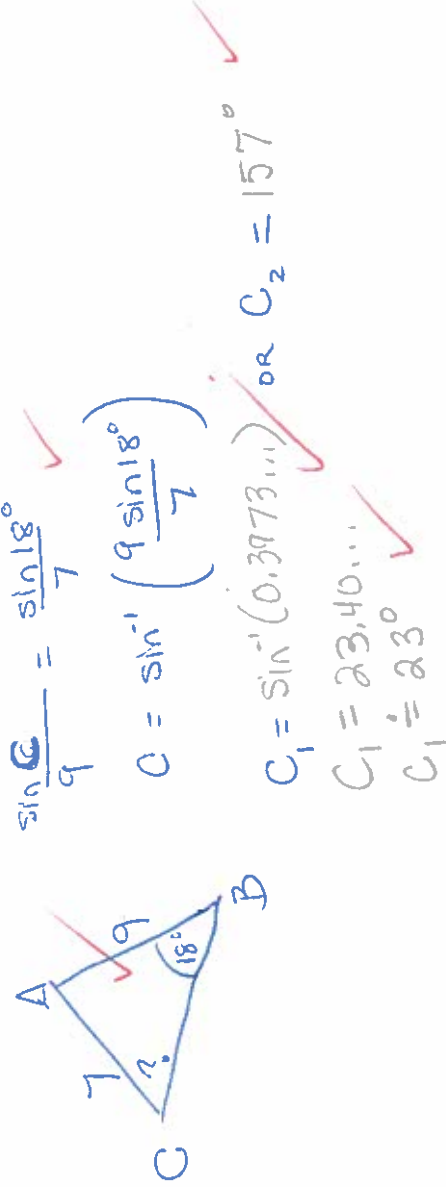 A
7
9
?
18°
C
B
sin C / 9 = sin 18° / 7
C = sin⁻¹ (9 sin 18° / 7)
C₁ = sin⁻¹(0.3973...) OR C₂ = 157°
C₁ = 23.40...
C₁ ≐ 23°